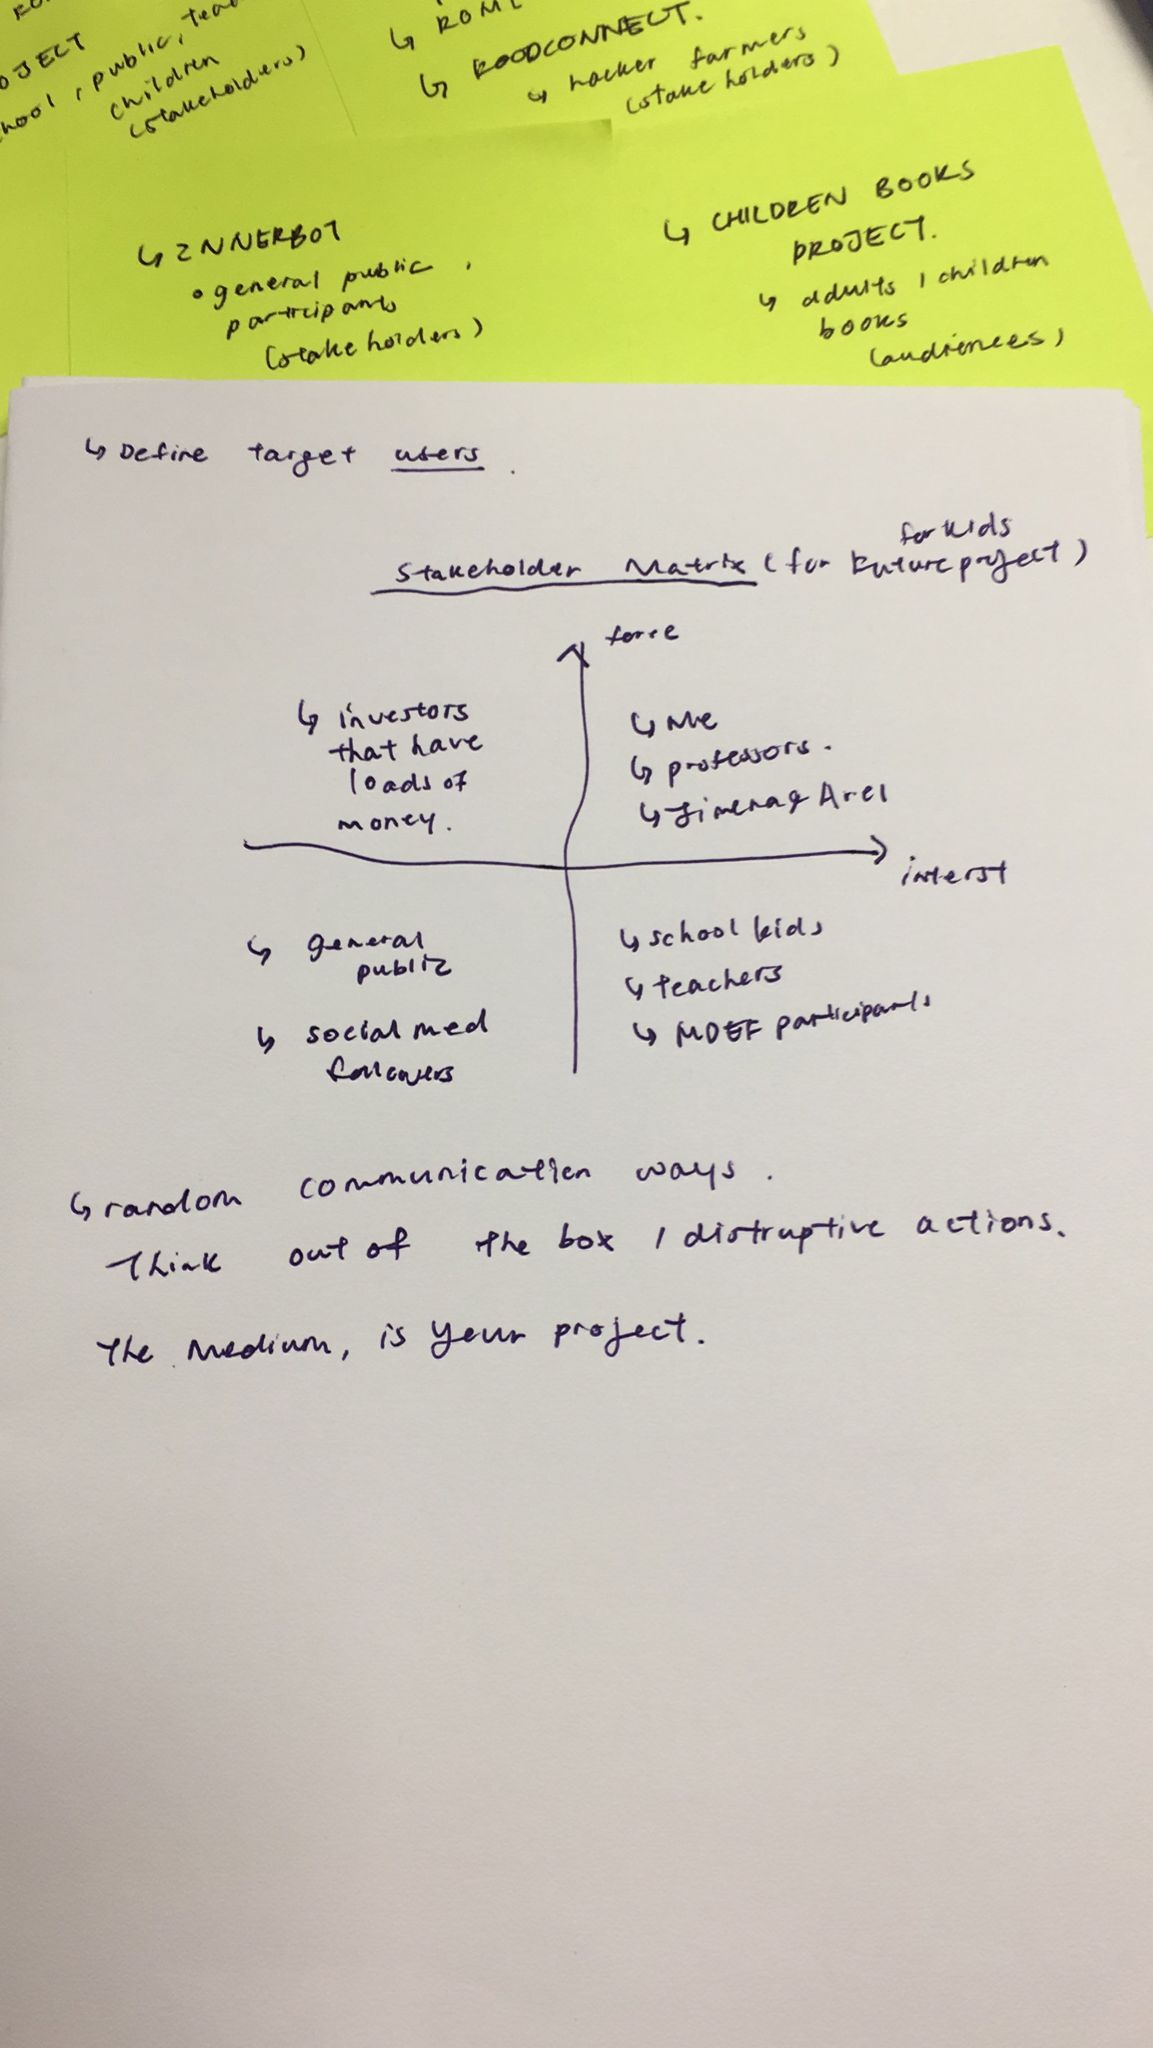 OJECT
children
(stakeholders)
↳ ROODCONNECT.
↳ hacker farmers
(stake holders)
↳ INNERBOT
• general public,
participants
(stake holders)
↳ CHILDREN BOOKS
PROJECT.
↳ adults / children
books
(audiences)
↳ Define target users.
for kids
Stakeholder Matrix (for future project)
force
↳ investors
that have
loads of
money.
↳ Me
↳ professors.
↳ Jimena &
interst
↳ general
public
↳ social med
followers
↳ school kids
↳ teachers
↳ MDEF participants
↳ random communication ways.
Think out of the box / distruptive actions.
The Medium, is your project.